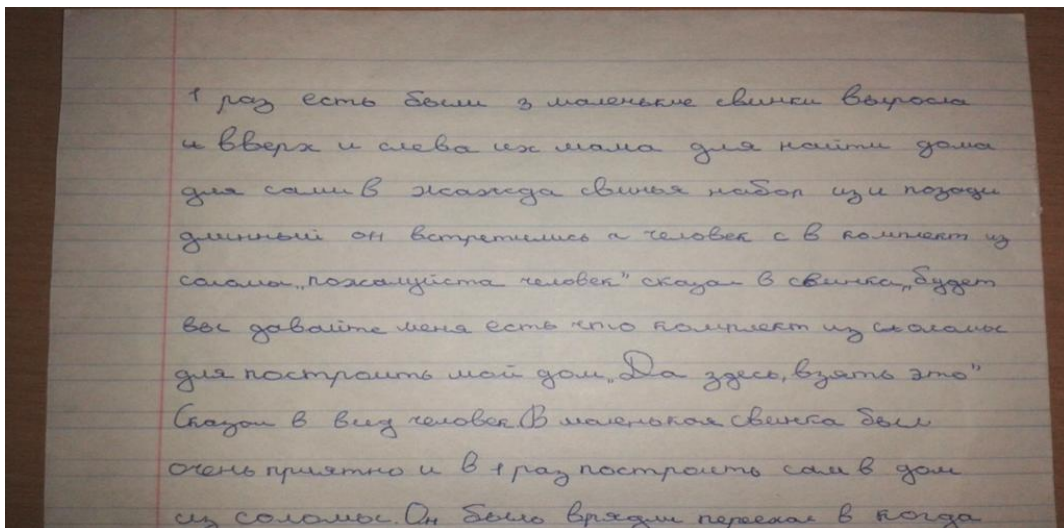 1 раз есть были 3 маленькие свинки выросла
и вверх и слева их мама для найти дома
для сами в жажда свинья набор из и позади
длинный он встретились а человек с в комплект из
соломы „пожалуйста человек" сказал в свинка „будет
вы давайте меня есть что комплект из соломы
для построить мой дом „Да здесь, взять это"
Сказал в вид человек. В маленькая свинка был
очень приятно и в 1 раз построить сам в дом
из соломы. Он было врядли переехал в когда